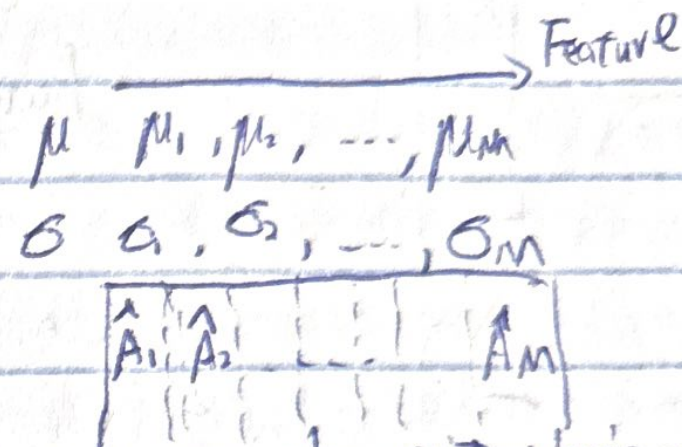 Feature
μ μ₁, μ₂, ---, μₘ
σ σ₁, σ₂, ---, σₘ
Â₁ Â₂ ---- Âₘ